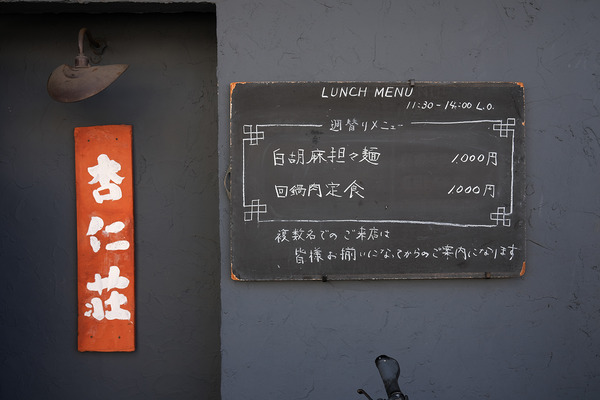 杏仁荘
LUNCH MENU
11:30-14:00 L.O.
週替りメニュー
白胡麻担々麺 1000円
回鍋肉定食 1000円
複数名でのご来店は
皆様お揃いになってからのご案内になります